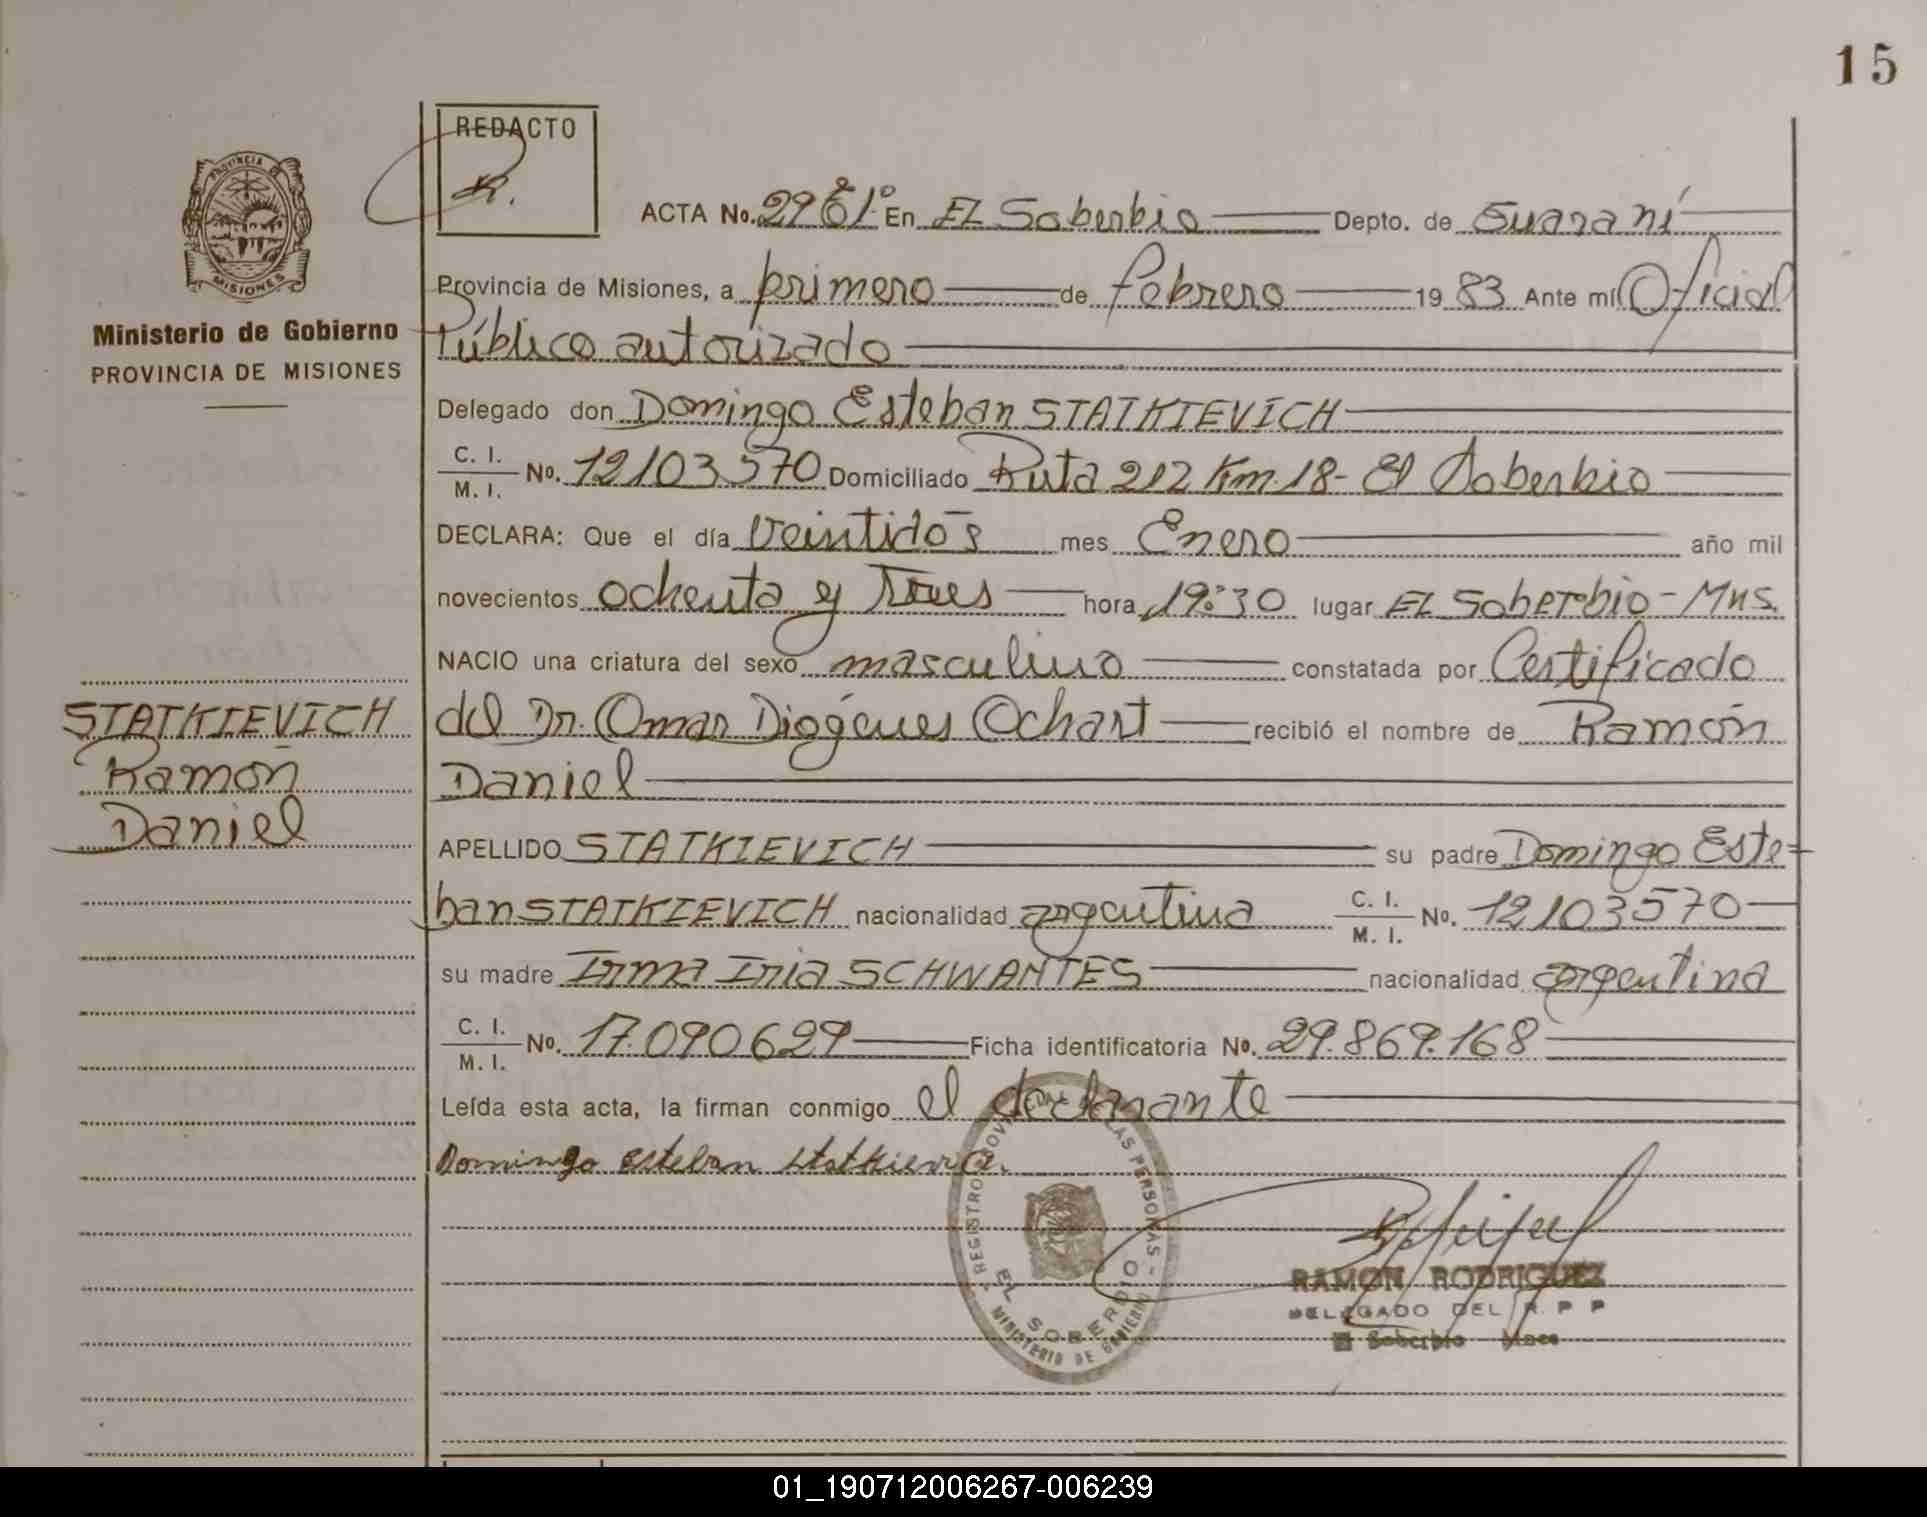 15
REDACTO
R.
PROVINCIA DE
MISIONES
Ministerio de Gobierno
PROVINCIA DE MISIONES
ACTA No. 29 En EL Soberbio Depto. de Guaraní
Provincia de Misiones, a primero de febrero 19 83 Ante mí Oficial
Público autorizado
Delegado don Domingo Esteban STATKIEVICH
C. I.
M. I. No. 12103570 Domiciliado Ruta 212 Km. 18- El Soberbio
DECLARA: Que el día veintidós mes Enero año mil
novecientos ochenta y Tres hora 19:30 lugar EL Soberbio - Mns.
NACIO una criatura del sexo masculino constatada por Certificado
del Dr. Omar Diógenes Ochart recibió el nombre de Ramón
Daniel
STATKIEVICH
Ramón
Daniel
APELLIDO STATKIEVICH su padre Domingo Este-
ban STATKIEVICH nacionalidad argentina C. I.
M. I. No. 12103570
su madre Irma Iria SCHWANTES nacionalidad argentina
C. I.
M. I. No. 17.090629 Ficha identificatoria No. 29.869.168
Leída esta acta, la firman conmigo el declarante
Domingo esteban statkievich
REGISTRO PROVINCIAL DE LAS PERSONAS
EL SOBERBIO
MINISTERIO DE GOBIERNO
RAMON RODRIGUEZ
DELEGADO DEL R P P
El Soberbio Mnes
01_190712006267-006239